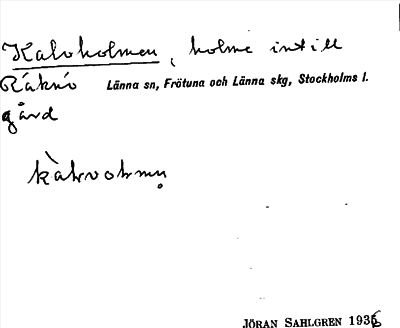 Kalvholmen, holme intill
Räknö Länna sn, Frötuna och Länna skg, Stockholms l.
gård
JÖRAN SAHLGREN 1936